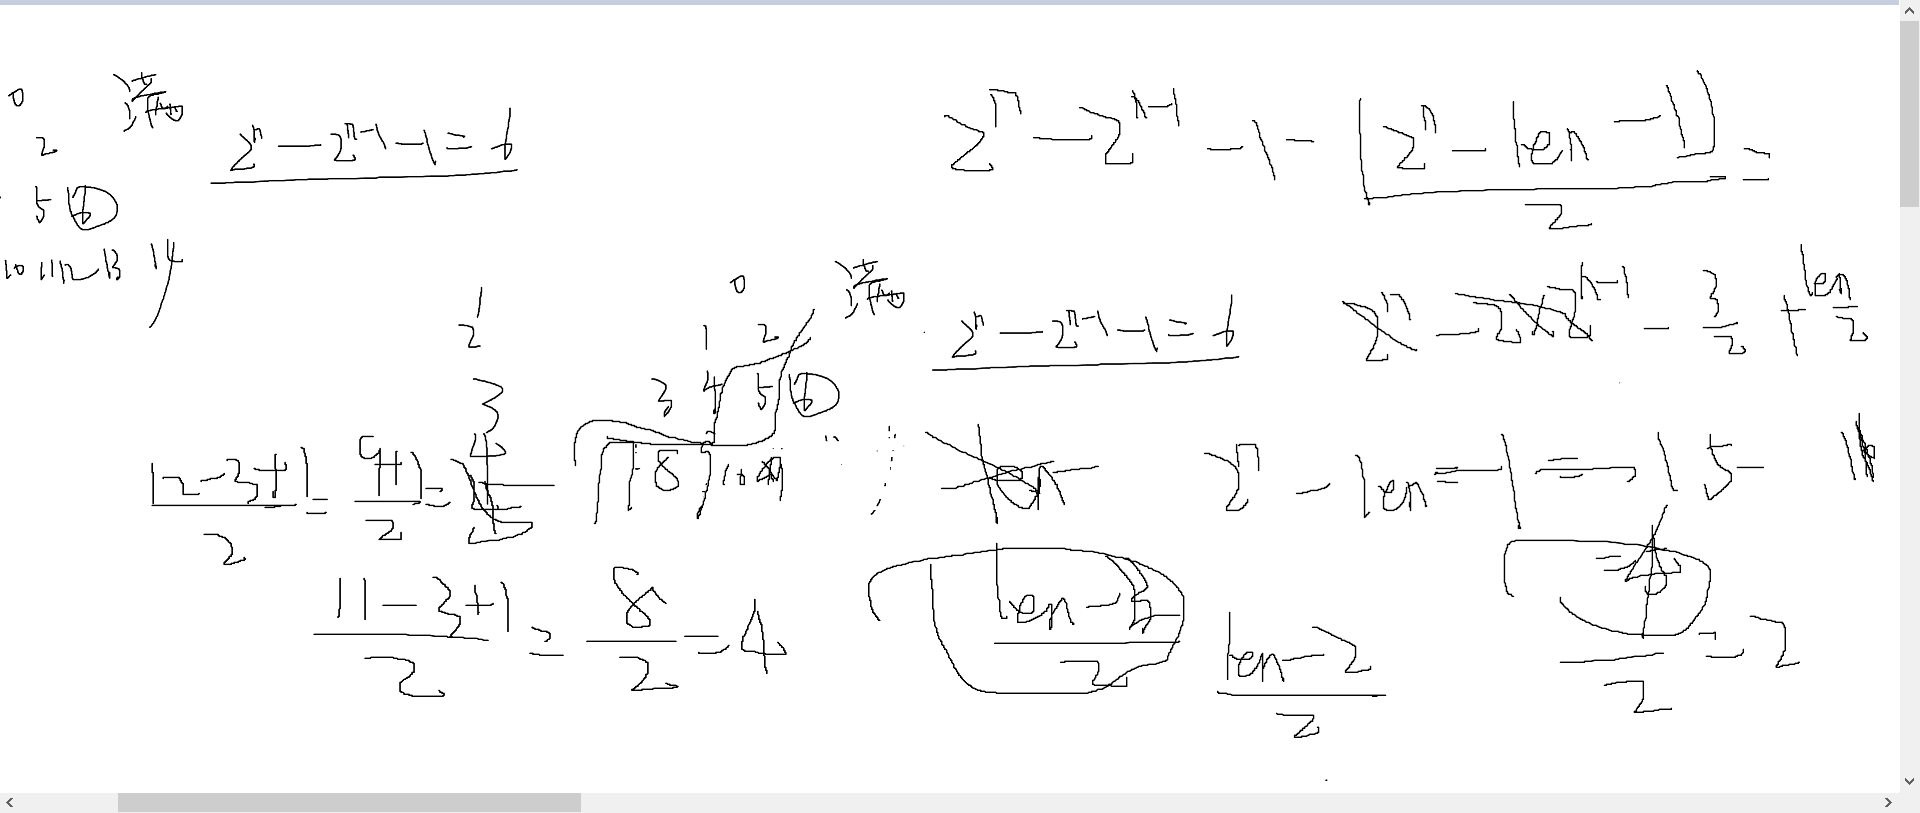 0
2
5 6
10 11 12 13 14
满
2^n - 2^{n-1} - 1 = 6
2^n - 2^{n-1} - 1 - [2^n - len - 1] / 2 =
0 满
1 2
3 4 5 6
7 8
1
2
3
4
2^n - 2^{n-1} - 1 = 6
2^n - 2×2^{n-1} - 3/2 + len/2
(12-3+1)/2 = (9+1)/2 =
2^n - len - 1 = 15 -
(11-3+1)/2 = 8/2 = 4
(len-3)/2
(len-2)/2
/2 = 2